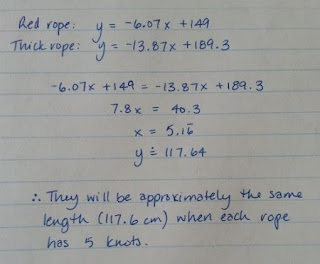 Red rope: y = -6.07x + 149
Thick rope: y = -13.87x + 189.3
-6.07x + 149 = -13.87x + 189.3
7.8x = 40.3
x = 5.16̄
y ≐ 117.64
∴ They will be approximately the same
length (117.6 cm) when each rope
has 5 knots.